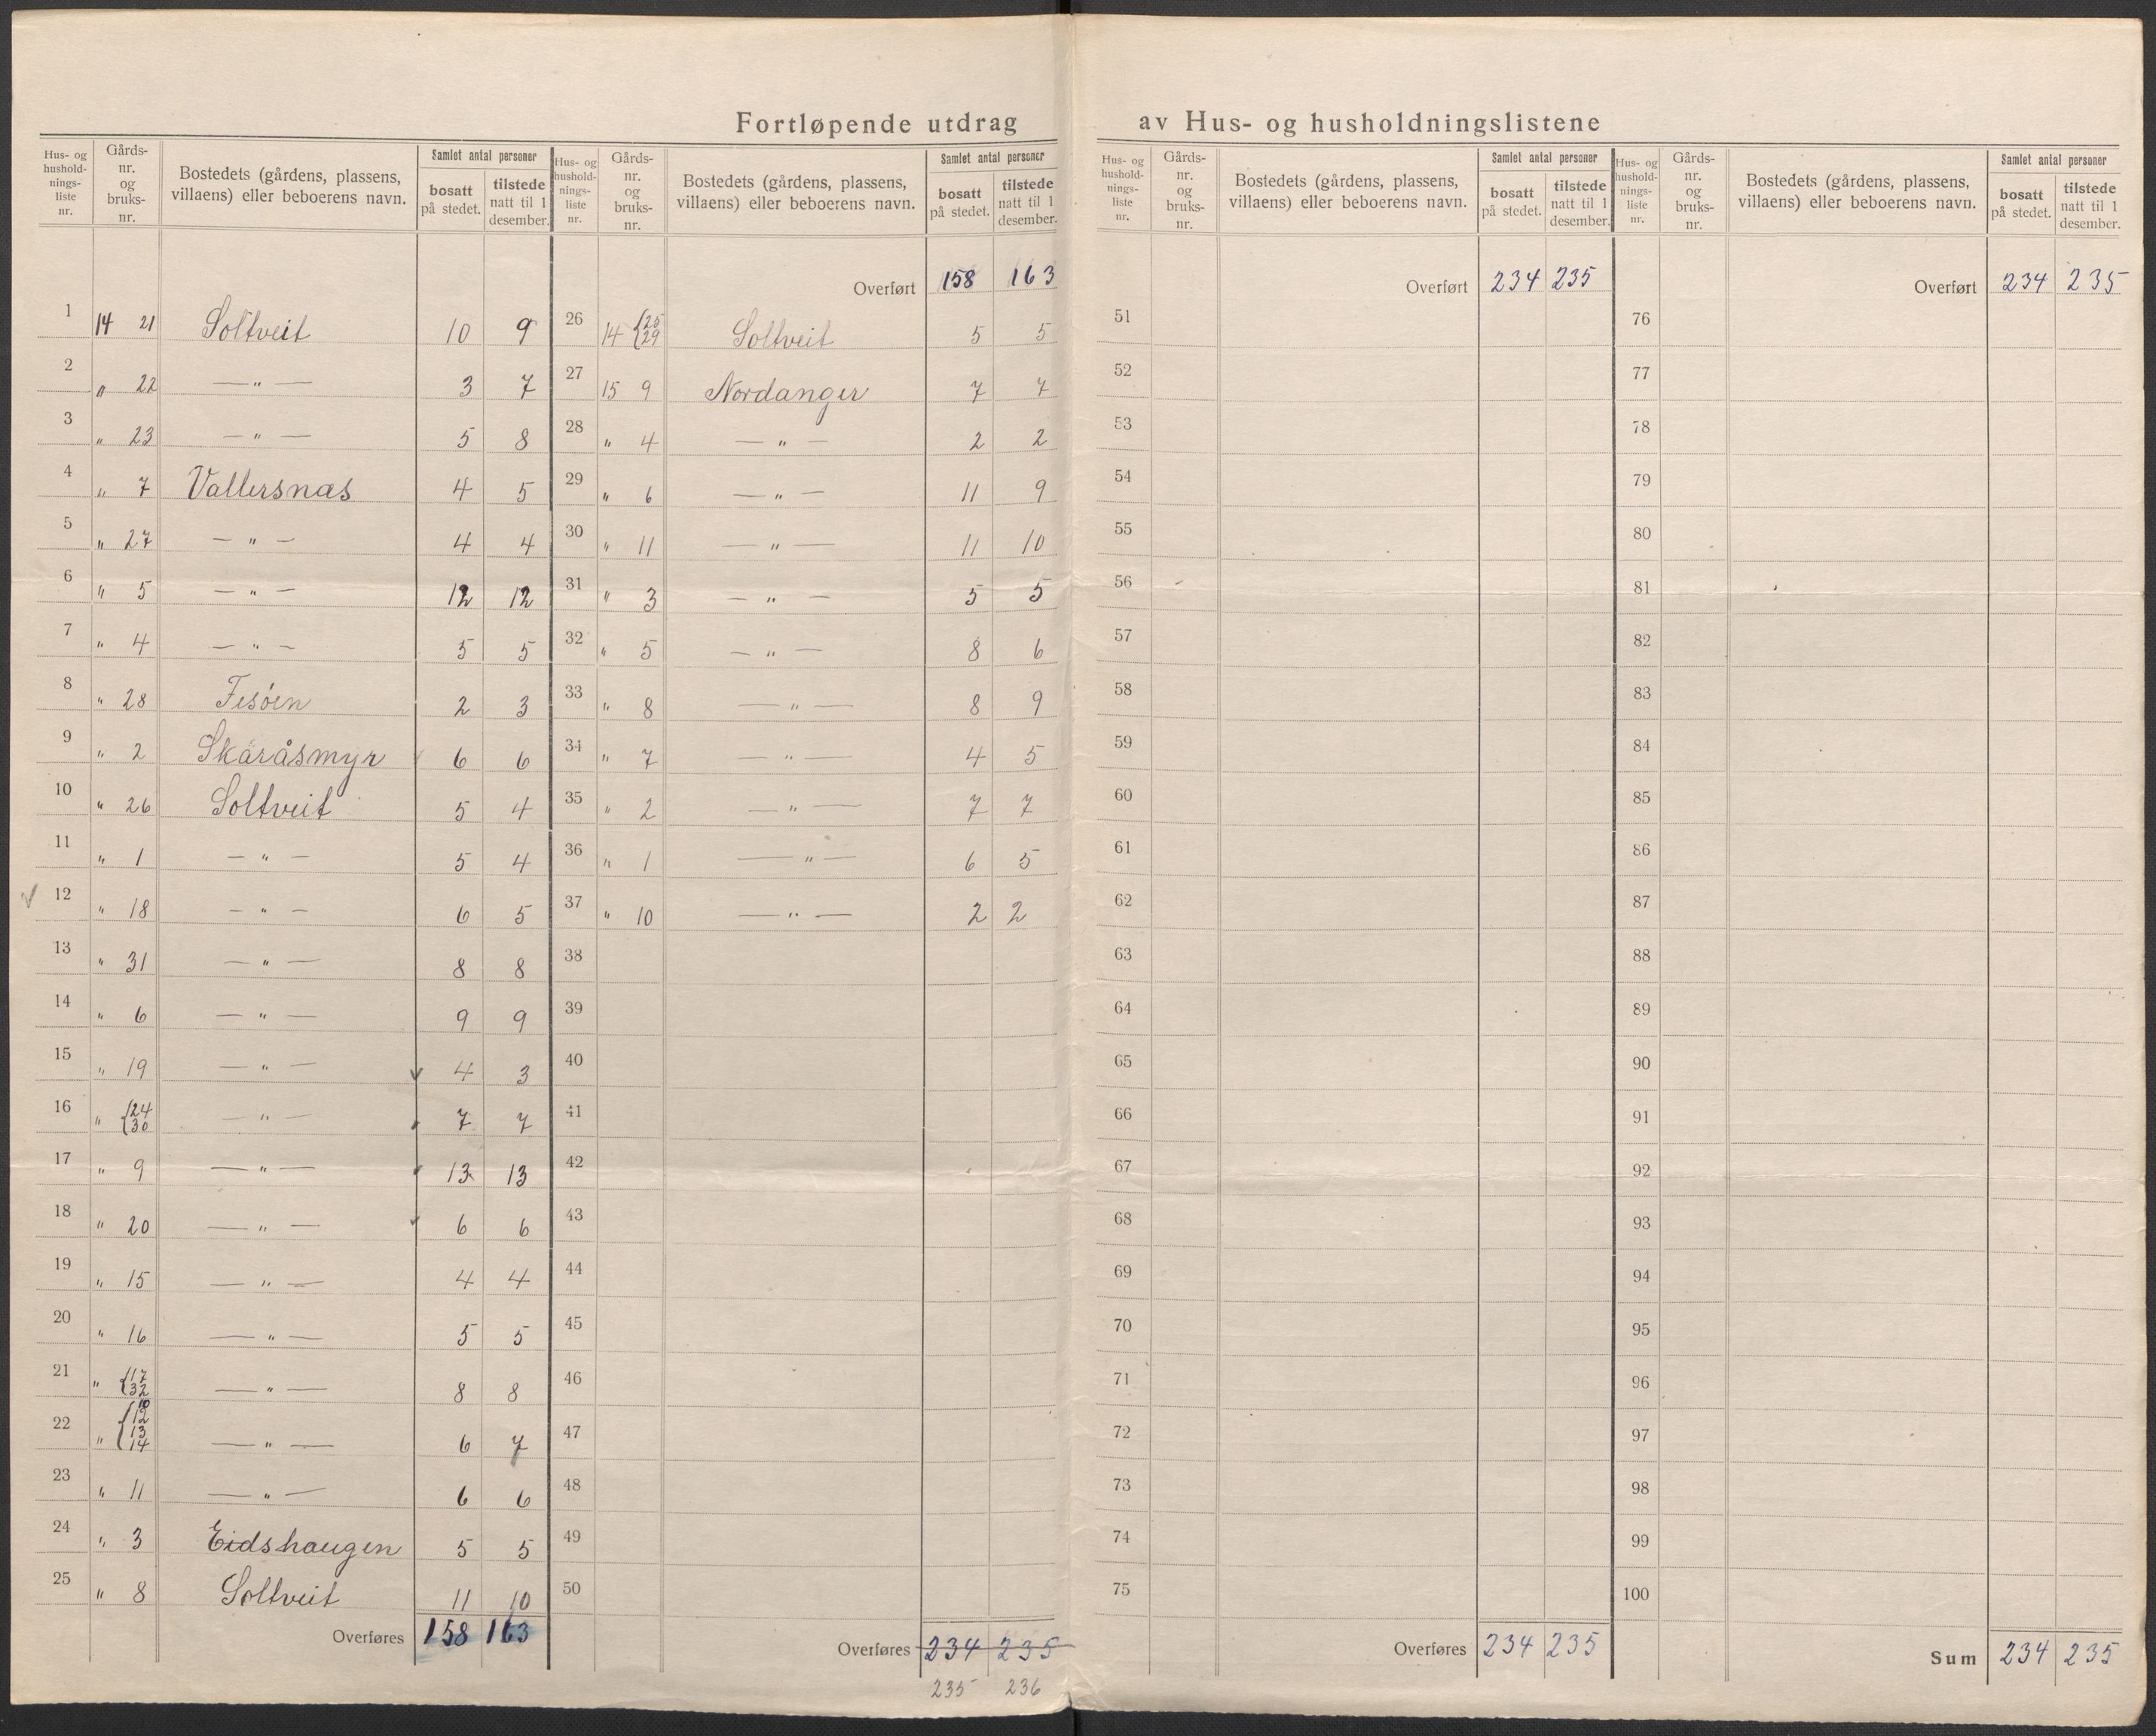 Fortløpende utdrag av Hus- og husholdningslistene
Hus- og hushold- nings- liste nr. Gårds- nr. og bruks- nr. Bostedets (gårdens, plassens, villaens) eller beboerens navn. Samlet antal personer bosatt på stedet. tilstede natt til 1 desember.
1 14 21 Soltveit 10 9
2 " 22 — " — 3 7
3 " 23 — " — 5 8
4 " 7 Vallersnas 4 5
5 " 27 — " — 4 4
6 " 5 — " — 12 12
7 " 4 — " — 5 5
8 " 28 Fesöen 2 3
9 " 2 Skäråsmyr 6 6
10 " 26 Soltveit 5 4
11 " 1 — " — 5 4
12 " 18 — " — 6 5
13 " 31 — " — 8 8
14 " 6 — " — 9 9
15 " 19 — " — 4 3
16 " {24 30 — " — 7 7
17 " 9 — " — 13 13
18 " 20 — " — 6 6
19 " 15 — " — 4 4
20 " 16 — " — 5 5
21 " {17 32 — " — 8 8
22 " {10 12 13 14 — " — 6 7
23 " 11 — " — 6 6
24 " 3 Eidshaugen 5 5
25 " 8 Soltveit 11 10
Overføres 158 163
Hus- og hushold- nings- liste nr. Gårds- nr. og bruks- nr. Bostedets (gårdens, plassens, villaens) eller beboerens navn. Samlet antal personer bosatt på stedet. tilstede natt til 1 desember.
Overført 158 163
26 14 {25 29 Soltveit 5 5
27 15 9 Nordanger 7 7
28 " 4 — " — 2 2
29 " 6 — " — 11 9
30 " 11 — " — 11 10
31 " 3 — " — 5 5
32 " 5 — " — 8 6
33 " 8 — " — 8 9
34 " 7 — " — 4 5
35 " 2 — " — 7 7
36 " 1 — " — 6 5
37 " 10 — " — 2 2
38
39
40
41
42
43
44
45
46
47
48
49
50
Overføres 234 235
235 236
Hus- og hushold- nings- liste nr. Gårds- nr. og bruks- nr. Bostedets (gårdens, plassens, villaens) eller beboerens navn. Samlet antal personer bosatt på stedet. tilstede natt til 1 desember.
Overført 234 235
51
52
53
54
55
56
57
58
59
60
61
62
63
64
65
66
67
68
69
70
71
72
73
74
75
Overføres 234 235
Hus- og hushold- nings- liste nr. Gårds- nr. og bruks- nr. Bostedets (gårdens, plassens, villaens) eller beboerens navn. Samlet antal personer bosatt på stedet. tilstede natt til 1 desember.
Overført 234 235
76
77
78
79
80
81
82
83
84
85
86
87
88
89
90
91
92
93
94
95
96
97
98
99
100
Sum 234 235